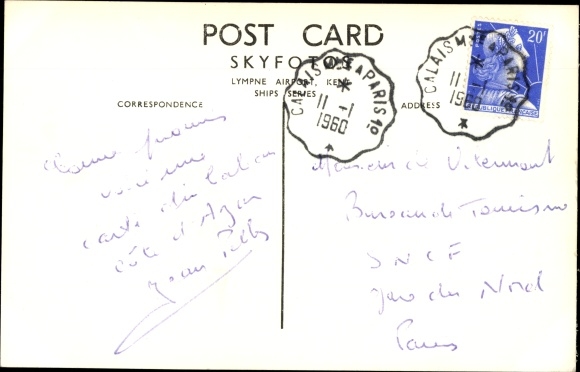 POST CARD
SKYFOTOS
LYMPNE AIRPORT, KENT
SHIPS SERIES
CORRESPONDENCE
ADDRESS
CALAIS Mme A PARIS 1o
11 -1
1960
CALAIS Mme A PARIS 1o
11
20F
REPUBLIQUE FRANCAISE
Comme promis
voici une
carte du
Côte d'Azur
Jean
Monsieur de Vilermont
Bureau de Tourisme
SNCF
Gare du Nord
Paris